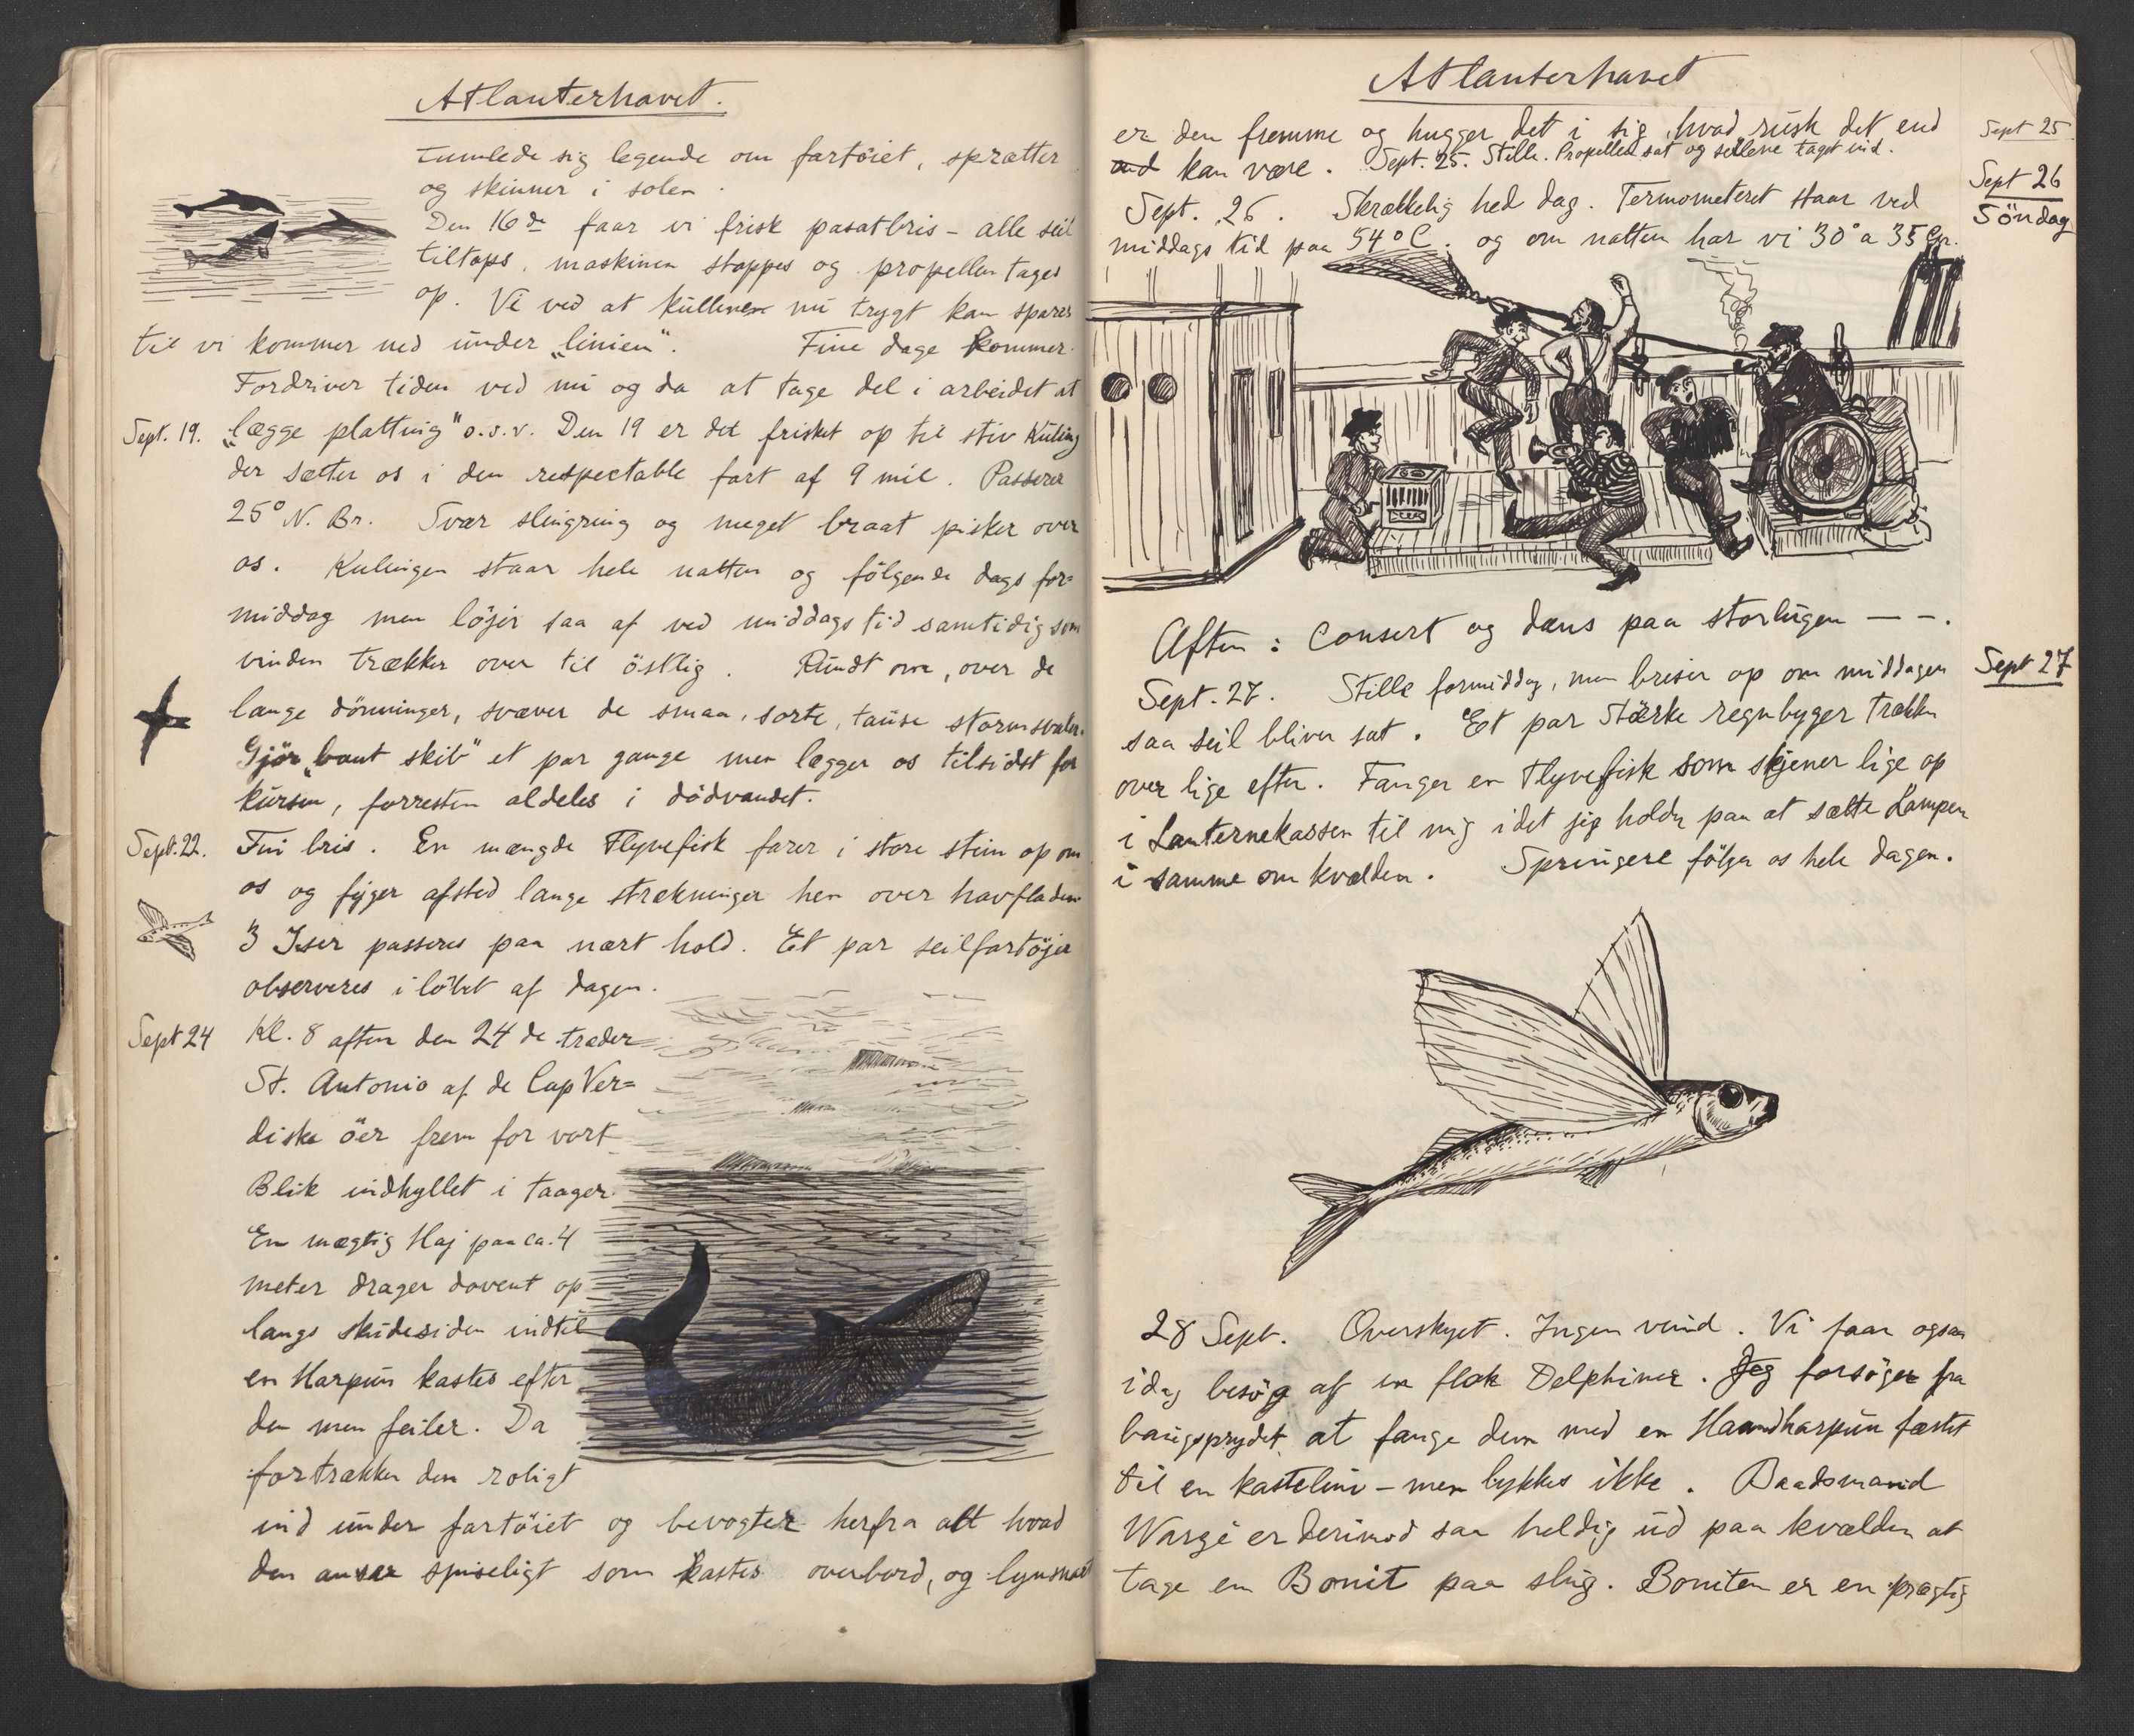 Atlanterhavet.
tumlede sig legende om fartöiet, sprætter
og skinner i solen.
Den 16de faar vi frisk pasatbris – alle seil
tiltops, maskinen stoppes og propellen tages
op. Vi ved at kullene nu trygt kan spares
til vi kommer ned under „linien". Fine dage kommer.
Fordriver tiden ved nu og da at tage del i arbeidet at
Sept. 19. „lægge plattnig" o.s.v. Den 19 er det frisket op til stiv Kuling
der sætter os i den respectable fart af 9 mil. Passerer
25° N. Br. Svær slingring og meget braat pisker over
os. Kulingen staar hele natten og fölgende dags for=
middag men löjer saa af ved middagstid samtidig som
vinden trækker over til östlig. Rundt om, over de
lange dönninger, svæver de smaa, sorte, tause stormsvaler.
Gjör „baut skib" et par gange men lægger os tilsidst for
kursen, forresten aldeles i dödvandet.
Sept. 22. Fin bris. En mængde Flyvefisk farer i store stim op om
os og fyger afsted lange strækninger hen over havfladen
3 Iser passeres paa nært hold. Et par seilfartöjer
observeres i löbet af dagen.
Sept 24 Kl. 8 aften den 24 de træder
St. Antonio af de Cap Ver=
diske öer frem for vort
Blik indhyllet i taager.
En mægtig Haj paa ca. 4
meter drager dovent op
langs skibesiden indtil
en Harpun kastes efter
den men feiler. Da
fortrækker den roligt
ind under fartöiet og bevogter herfra alt hvad
den anser spiseligt som kastes overbord, og lynsnart
Atlanterhavet
er den fremme og hugger det i sig, hvad rusk det end
end kan være. Sept. 25. Stille. Propellen sat og seilene taget ind.
Sept 25
Sept 26
Söndag
Sept. 26. Skrækkelig hed dag. Termometeret staar ved
middags tid paa 54° C. og om natten har vi 30° a 35 Gr.
Aften: Consert og dans paa storlugen – –.
Sept 27
Sept. 27. Stille formiddag, men briser op om middagen
saa seil bliver sat. Et par stærke regnbyger trækker
over lige efter. Fanger en Flyvefisk som skjener lige op
i Lanternekassen til mig idet jeg holder paa at sætte Lampen
i samme om kvælden. Springere fölger os hele dagen.
28 Sept. Overskyet. Ingen vind. Vi faar ogsaa
idag besög af en flok Delphiner. Jeg forsöger fra
baugsprydet at fange dem med en Haandharpun fæstet
til en kasteline – men lykkes ikke. Baadsmand
Wargè er derimod saa heldig ud paa kvælden at
tage en Bonit paa slug. Boniten er en prægtig